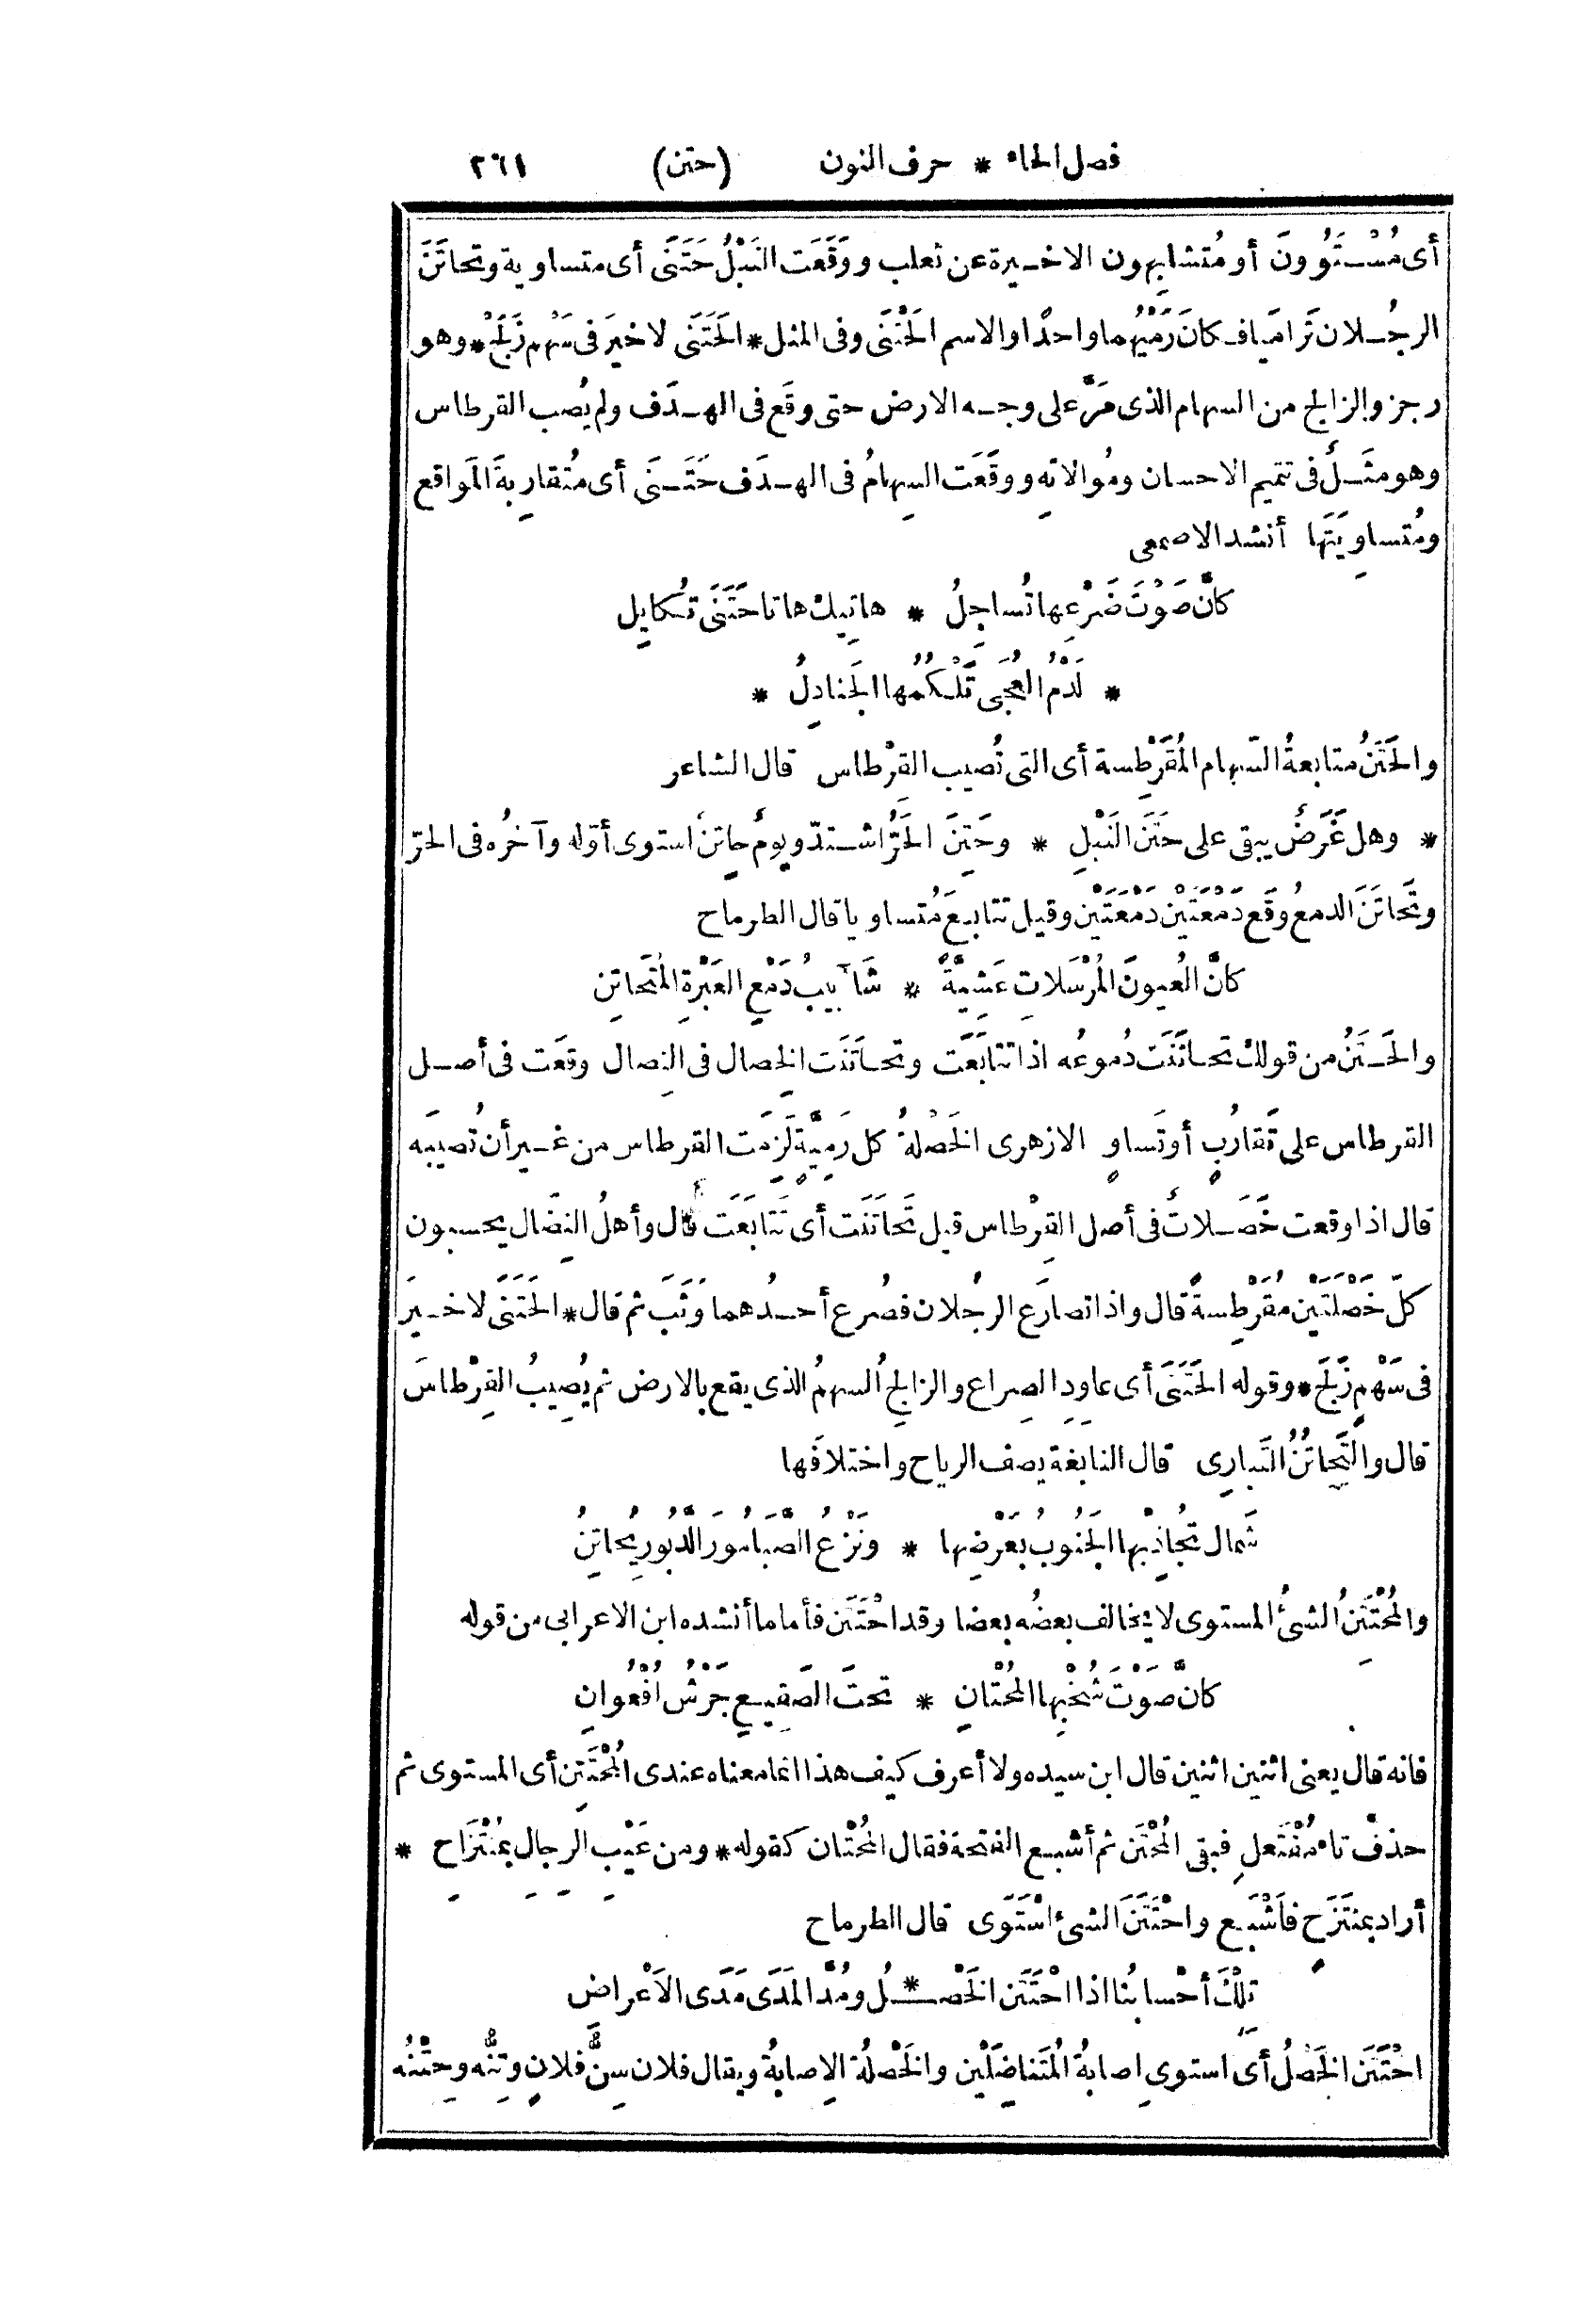 فصل الحاء * حرف النون (حتن) ٢٦١
أى مُسْتَوُونَ أو مُتشابِهون الاخيرة عن ثعلب ووَقَعَت النَبْلُ حَتَنَى أى متساوية وتحاتَنَ
الرجُلان تَرامَيا فكانَ رَمْيُهما واحدًا والاسم الحَتْنَى وفى المثل * الحَتَنَى لا خيرَ فى سَهْم زَلَجْ * وهو
رجز والزالج من السهام الذى مَرَّ على وجه الارض حتى وقَع فى الهدَف ولم يُصب القرطاس
وهو مثَلٌ فى تتميم الاحسان ومُوالاتِه ووقَعَت السِهامُ فى الهدَف حَتَنَى أى مُتقاربةَ المَواقع
ومُتساوِيَتَها أنشد الاصمعى
كأنَّ صَوْتَ ضَرْعِها تُساجِلُ * هاتِيك هاتا حَتَنَى تُكايِل
* لَدْمُ العُجَى تَلْكُمُها الجَنادِلُ *
والحَتَنُ متابعةُ السّهام المُقَرْطِسة أى التى تُصيب القِرْطاس قال الشاعر
* وهل غَرَضٌ يبقى على حَتَنِ النَبْلِ * وحَتِنَ الحَرُّ اشتدّ ويومٌ حاتِنٌ استوى أوّله وآخرُه فى الحرّ
وتَحاتَنَ الدمعُ وقَع دَمْعَتَيْن دَمْعَتَيْن وقيل تتابعَ مُتساويا قال الطرماح
كأنَّ العُيونَ المُرْسَلاتِ عَشِيَّةً * شَآبيبُ دَمْعِ العَبْرةِ المُتَحاتِن
والحَتَنُ من قولك تحاتَنَتْ دُموعُه اذا تتابَعَت وتحاتَنَت الخِصال فى النِصال وقعَت فى أصل
القرطاس على تَقارُبٍ أوتَساوٍ الازهرى الخَصْلةُ كل رَمِيَّةٍ لَزِمَت القرطاس من غير أن تُصيبَه
قال اذا وقعت خَصَلاتٌ فى أصل القِرْطاس قيل تَحاتَنَت أى تَتابَعَت قال وأهلُ النِضال يحسبون
كلّ خَصْلَتَيْن مُقَرْطِسةً قال واذا تصارَع الرجُلان فصُرع أحدُهما وَثَب ثم قال * الحَتَنَى لا خيرَ
فى سَهْمٍ زَلَجْ * وقوله الحَتَنَى أى عاوِدِ الصِراع والزالِجُ السهمُ الذى يقع بالارض ثم يُصِيبُ القِرْطاسَ
قال والتَّحاتُنُ التَبارِى قال النابغة يصف الرياح واختلافَها
شَمال تُجاذِبُها الجَنُوبُ بعَرْضِها * ونَزْعُ الصَّبَا مُورَ الدَّبُورِ يُحاتِنُ
والمُحْتَتِنُ الشئُ المستوى لا يُخالف بعضُه بعضا وقد احْتَتَن فأما ما أنشده ابن الاعرابى من قوله
كأنَّ صَوْتَ شُخْبِها المُحْتانِ * تحتَ الصَقِيعِ جَرْشُ أُفْعُوانِ
فانه قال يعنى اثنين اثنين قال ابن سيده ولا أعرف كيف هذا انما معناه عندى المُحْتَتِن أى المستوى ثم
حذف تاء مُفْتَعل فبقى المُحْتَن ثم أشبع الفتحة فقال المُحْتان كقوله * ومن عَيْبِ الرِجالِ بمُنْتَزَاحِ *
أراد بمنتَزَحٍ فأَشْبَع واحْتَتَنَ الشئُ اسْتَوَى قال الطرماح
تِلْكَ أحْسابُنا اذا احْتَتَن الخَصْـ * ـلُ ومُدَّ المَدَى مَدَى الأَعْراضِ
احْتَتَن الخَصْلُ أى استوى اصابةُ المُتَناضِلَيْن والخَصْلةُ الاِصابةُ ويقال فلان سِنُّ فلانٍ وتِنُّه وحِتْنُه